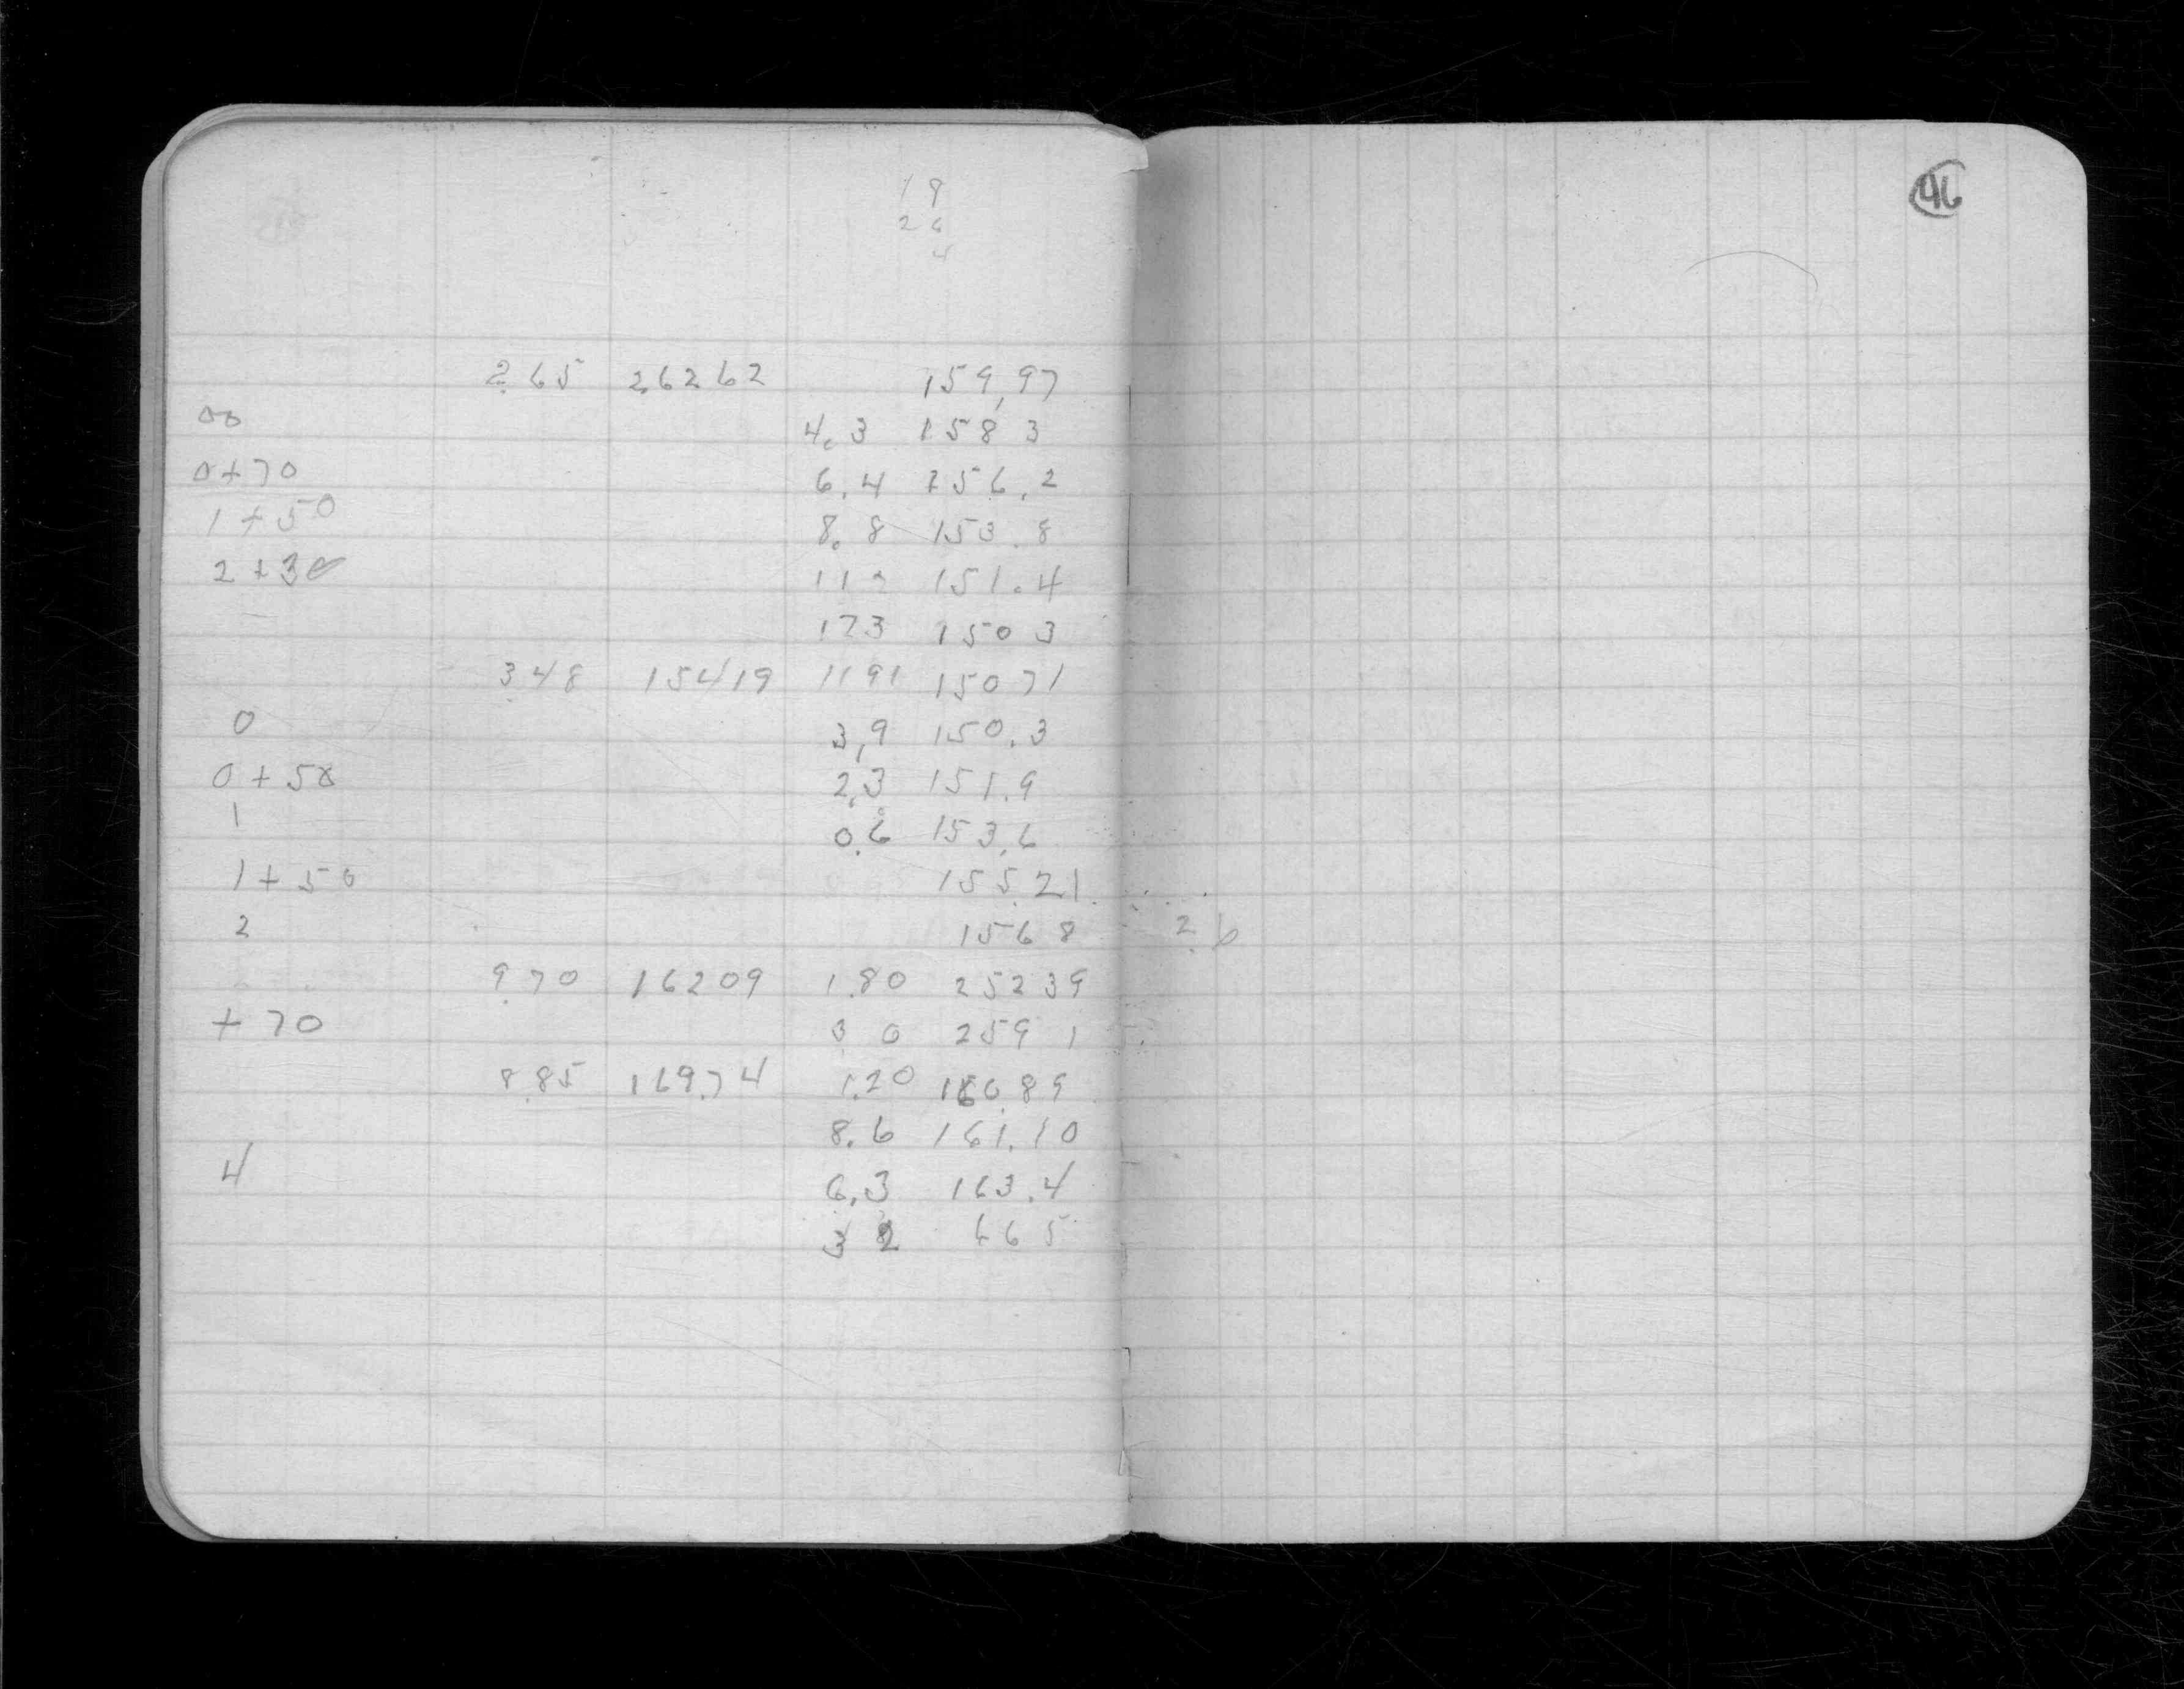 46
1 9
2 6
265 26262 159,97
00 4.3 158 3
0+70 6.4 256.2
1+50 8.8 153.8
2+30 11 2 151.4
123 150 3
3 48 154 19 11 91 150 71
0 3,9 150.3
0+50 2.3 151.9
1 0.6 153.6
1+50 155.21
2 156 8 2 6
9 70 162 09 1.80 252 39
+70 3 0 259 1
8.85 169.74 1.20 160.89
8.6 161.10
4 6.3 163.4
3 2 66 5